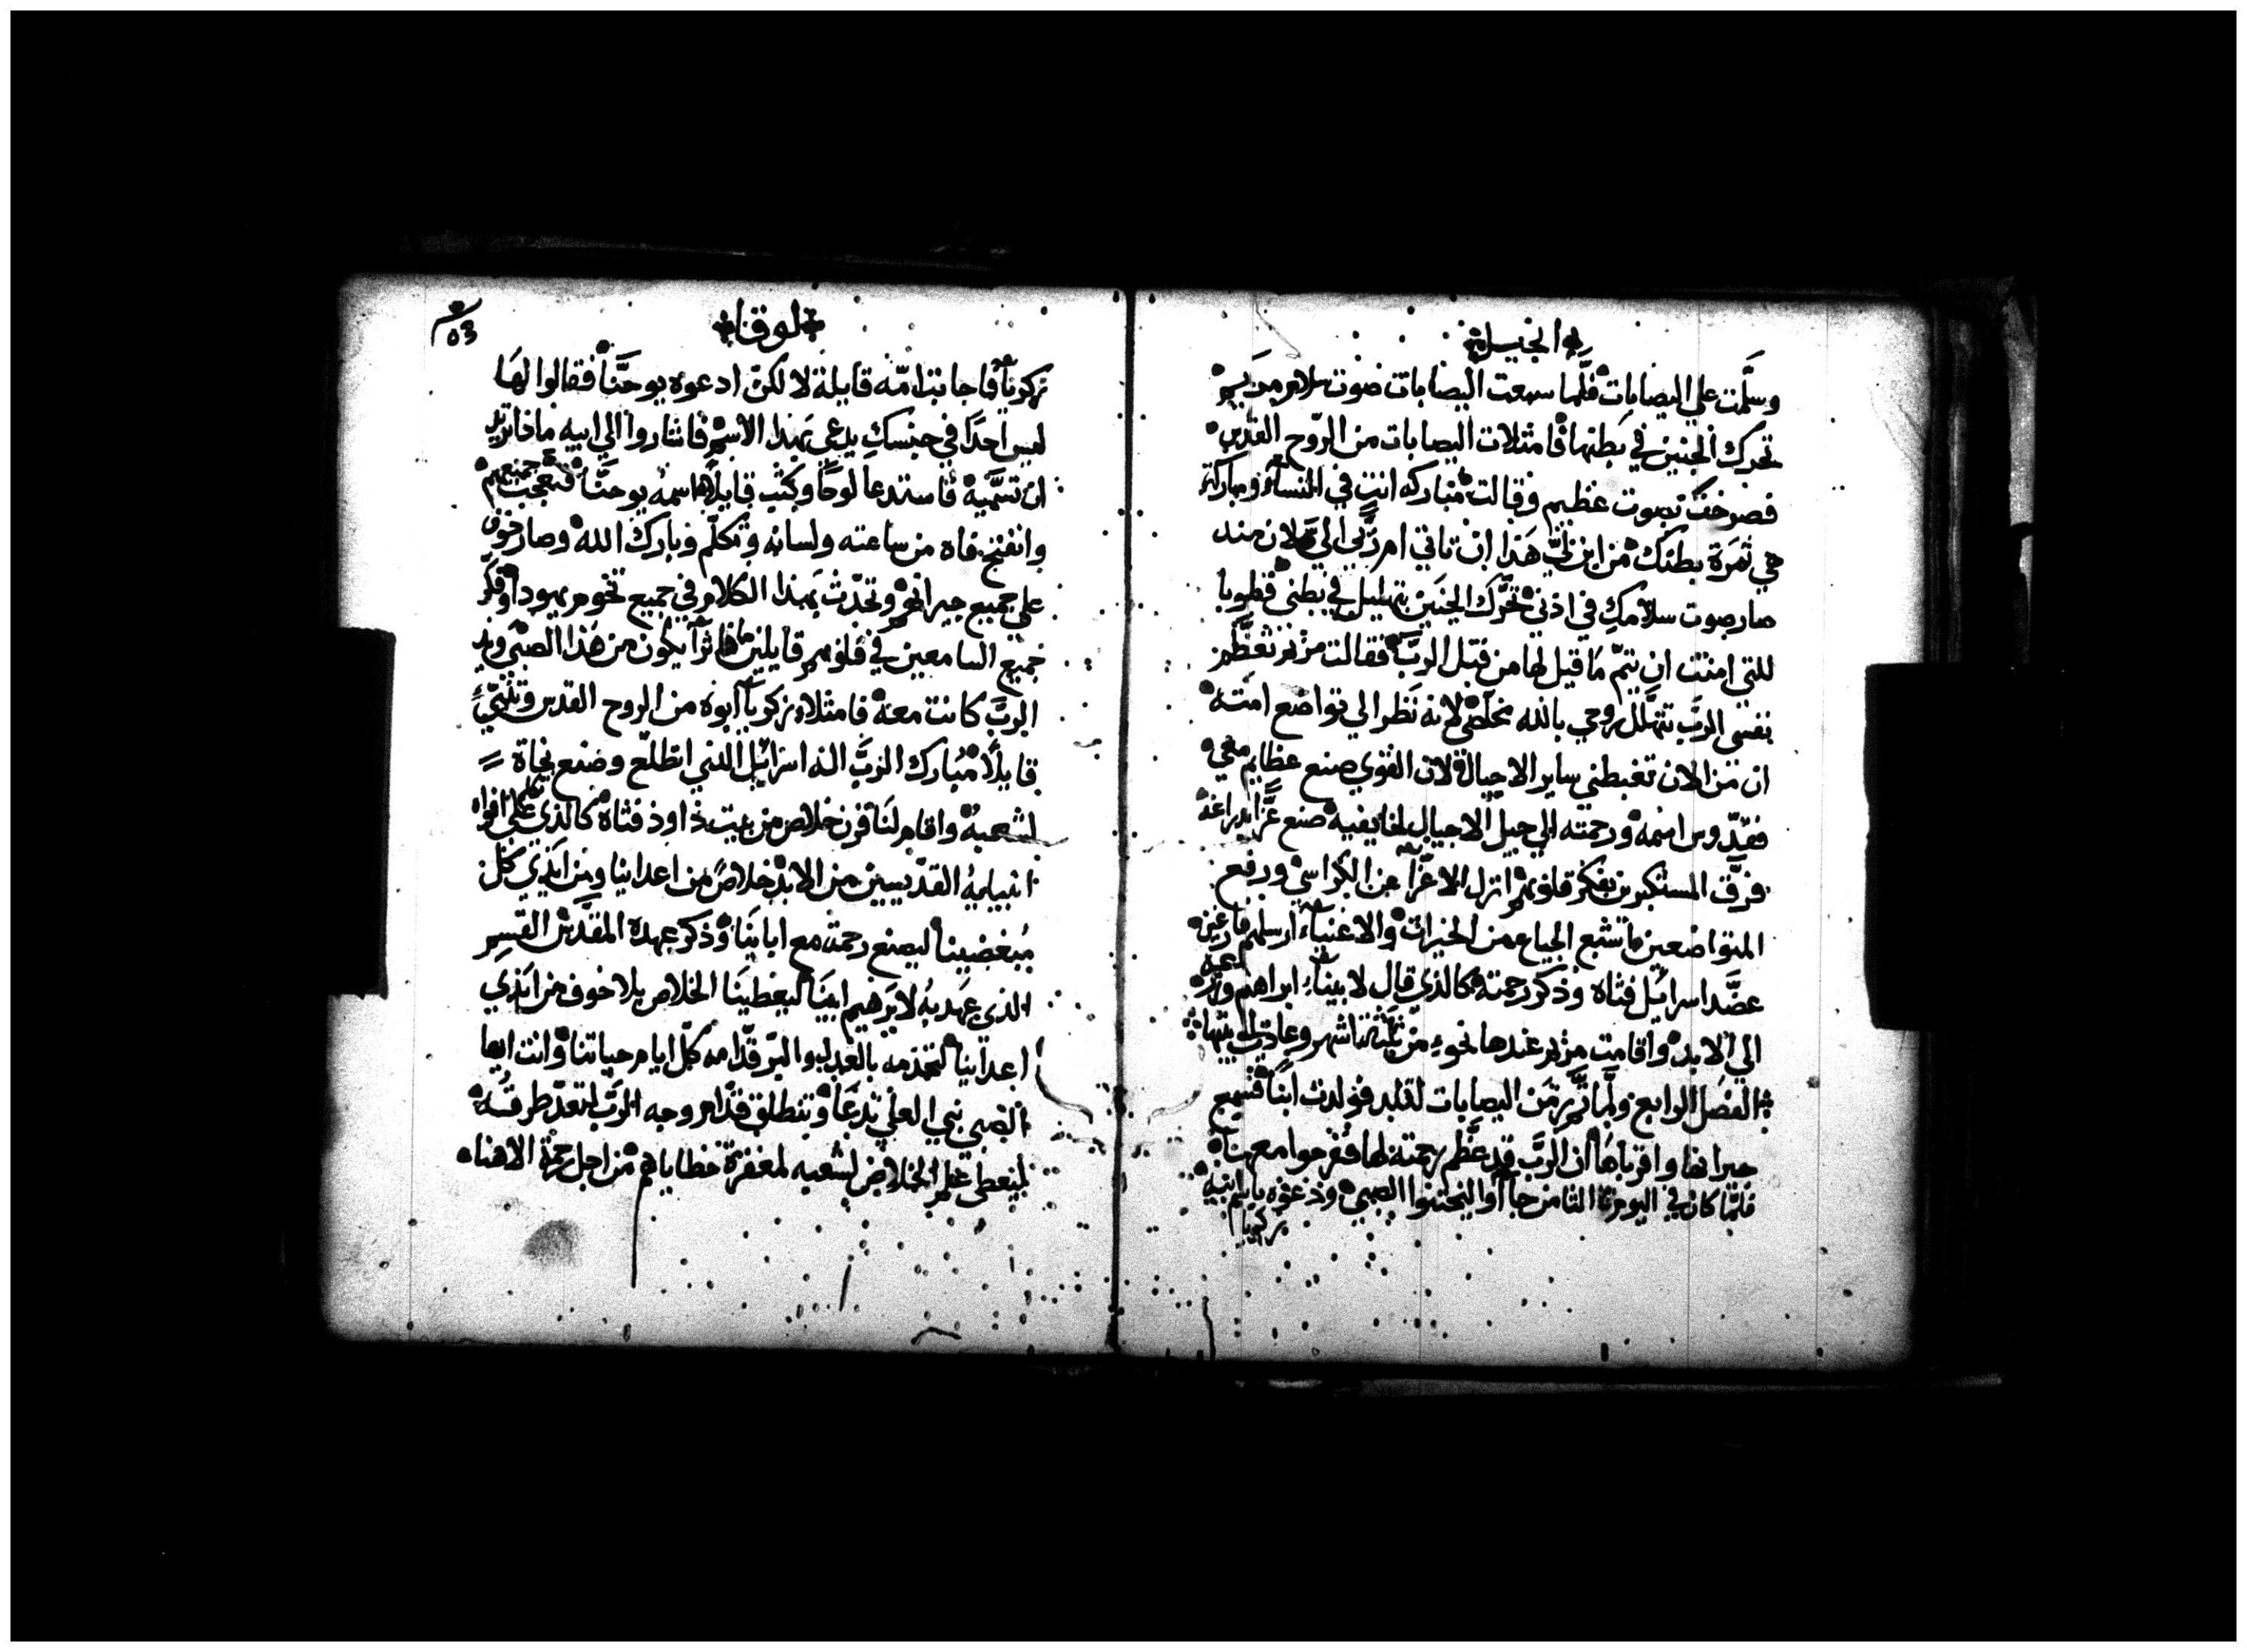 انجيل
وسلّمت علي اليصابات فلمّا سمعت اليصابات صوت سلام مريم
تحرك الجنين في بطنها فامتلات اليصابات من الروح القدس
فصرخت بصوت عظيم وقالت مباركه انتِ في النساء ومباركة
هي ثمرة بطنك من اين لي هذا ان تاتي ام ربّي اليّ لان منذ
صار صوت سلامكِ في اذني تحرّك الجنين بتهليل في بطني فطوبا
للتي امنت ان يتمّ ما قيل لها من قبل الربّ فقالت مريم تعظّم
نفسي الربّ تتهلّل روحي بالله مخلّصي لانه نظر الي تواضع امته
ان من الان تغبطني ساير الاجيال لان القوي صنع عظايم معي
فقدّوس اسمه ورحمته الي جيل الاجيال لخايفيه صنع عزّا بذراعه
فرّق المستكبرين بفكر قلوبهم انزل الاعزّا عن الكراسي ورفع
المتواضعين اشبع الجياع من الخيرات والاغنياء ارسلهم فارغين
عضّد اسرائيل فتاه وذكر رحمته كالذي قال لابيناء ابراهيم وزرعه
الي الابد واقامت مريم عندها نحوء من ثلثة اشهر وعادت الي بيتها
الفصل الرابع ولمّا تمّ زمن اليصابات لتلد فولدت ابناً فسمع
جيرانها واقرباها ان الربّ قد عظّم رحمته لها ففرحوا معها
فلمّا كان في اليوم الثامن جاآوا ليختنوا الصبي ودعوه باسم ابيه
زكريا
لوقا
زكريا فاجابت امّه قايلة لا لكن ادعوه يوحنّا فقالوا لها
ليس احدًا في جنسكِ يدعي بهذا الاسم فاشاروا الي ابيه ماذا تريد
ان تسمّيه فاستدعا لوحًا وكتب قايلاً اسمه يوحنّا فتعجّب جميعهم
وانفتح فاه من ساعته ولسانه وتكلّم وبارك الله وصار خوف
علي جميع جيرانهم وتحدّث بهذا الكلام في جميع تخوم يهودا وفكّر
جميع السامعين في قلوبهم قايلين ماذا ترا يكون من هذا الصبي ويد
الربّ كانت معه فامتلاء زكريا ابوه من الروح القدس وتنبّي
قايلاً مبارك الربّ اله اسرائيل الذي اطّلع وصنع نجاة
لشعبه واقام لنا قرن خلاص من بيت داود فتاه كالذي تكلم علي افواه
انبيايه القدّيسين من الابد خلاص من اعداينا ومن ايدي كل
مبغضينا ليصنع رحمة مع اباينا وذكر عهده المقدّس القسم
الذي عهد به لابرهيم ابينا ليعطينا الخلاص بلا خوف من ايدي
اعداينا لنخدمه بالعدل والبرّ قدّامه كلّ ايام حياتنا وانت ايها
الصبي نبي العلي تدعا وتنطلق قدّام وجه الربّ لتعدّ طرقه
ليعطي علم الخلاص لشعبه لمغفرة خطاياهم من اجل رحمة الاهنا